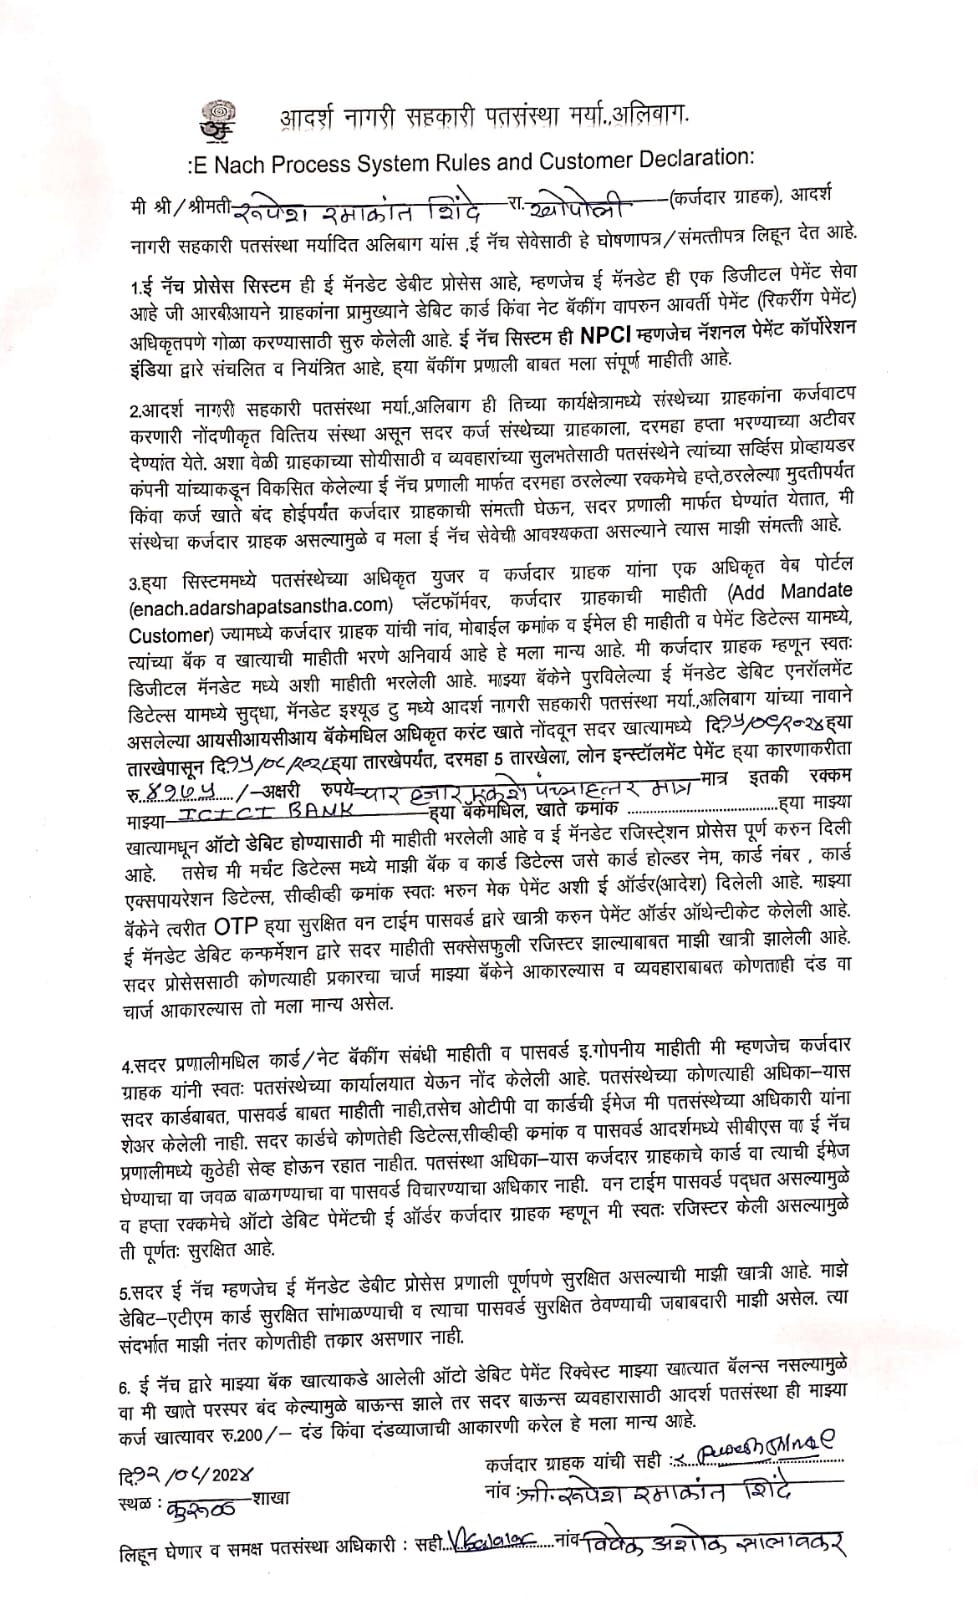 आदर्श नागरी सहकारी पतसंस्था मर्या.,अलिबाग.
:E Nach Process System Rules and Customer Declaration:
मी श्री/श्रीमती रुपेश रमाकांत शिंदे रा. खोपोली (कर्जदार ग्राहक), आदर्श
नागरी सहकारी पतसंस्था मर्यादित अलिबाग यांस ,ई नॅच सेवेसाठी हे घोषणापत्र/संमत्तीपत्र लिहून देत आहे.
1.ई नॅच प्रोसेस सिस्टम ही ई मॅनडेट डेबीट प्रोसेस आहे, म्हणजेच ई मॅनडेट ही एक डिजीटल पेमेंट सेवा
आहे जी आरबीआयने ग्राहकांना प्रामुख्याने डेबिट कार्ड किंवा नेट बॅकींग वापरुन आवर्ती पेमेंट (रिकरींग पेमेंट)
अधिकृतपणे गोळा करण्यासाठी सुरु केलेली आहे. ई नॅच सिस्टम ही NPCI म्हणजेच नॅशनल पेमेंट कॉर्पोरेशन
इंडिया द्वारे संचलित व नियंत्रित आहे, ह्या बॅकींग प्रणाली बाबत मला संपूर्ण माहीती आहे.
2.आदर्श नागरी सहकारी पतसंस्था मर्या.,अलिबाग ही तिच्या कार्यक्षेत्रामध्ये संस्थेच्या ग्राहकांना कर्जवाटप
करणारी नोंदणीकृत वित्तिय संस्था असून सदर कर्ज संस्थेच्या ग्राहकाला, दरमहा हप्ता भरण्याच्या अटीवर
देण्यांत येते. अशा वेळी ग्राहकाच्या सोयीसाठी व व्यवहारांच्या सुलभतेसाठी पतसंस्थेने त्यांच्या सर्व्हिस प्रोव्हायडर
कंपनी यांच्याकडून विकसित केलेल्या ई नॅच प्रणाली मार्फत दरमहा ठरलेल्या रक्कमेचे हप्ते,ठरलेल्या मुदतीपर्यत
किंवा कर्ज खाते बंद होईपर्यंत कर्जदार ग्राहकाची संमत्ती घेऊन, सदर प्रणाली मार्फत घेण्यांत येतात, मी
संस्थेचा कर्जदार ग्राहक असल्यामुळे व मला ई नॅच सेवेची आवश्यकता असल्याने त्यास माझी संमत्ती आहे.
3.ह्या सिस्टममध्ये पतसंस्थेच्या अधिकृत युजर व कर्जदार ग्राहक यांना एक अधिकृत वेब पोर्टल
(enach.adarshapatsanstha.com) प्लॅटफॉर्मवर, कर्जदार ग्राहकाची माहीती (Add Mandate
Customer) ज्यामध्ये कर्जदार ग्राहक यांची नांव, मोबाईल कमांक व ईमेल ही माहीती व पेमेंट डिटेल्स यामध्ये,
त्यांच्या बॅक व खात्याची माहीती भरणे अनिवार्य आहे हे मला मान्य आहे. मी कर्जदार ग्राहक म्हणून स्वतः
डिजीटल मॅनडेट मध्ये अशी माहीती भरलेली आहे. माझ्या बॅकेने पुरविलेल्या ई मॅनडेट डेबिट एनरॉलमेंट
डिटेल्स यामध्ये सुद्धा, मॅनडेट इश्यूड टु मध्ये आदर्श नागरी सहकारी पतसंस्था मर्या.,अलिबाग यांच्या नावाने
असलेल्या आयसीआयसीआय बॅकेमधिल अधिकृत करंट खाते नोंदवून सदर खात्यामध्ये दि.१५/०८/२०२४ ह्या
तारखेपासून दि.१५/०८/२०२८ ह्या तारखेपर्यंत, दरमहा 5 तारखेला, लोन इन्स्टॉलमेंट पेमेंट ह्या कारणाकरीता
रु. ४१७५ /-अक्षरी रुपये चार हजार एकशे पंच्याहत्तर मात्र मात्र इतकी रक्कम
माझ्या ICICI BANK ह्या बॅकेमधिल, खाते कमांक ........................... ह्या माझ्या
खात्यामधून ऑटो डेबिट होण्यासाठी मी माहीती भरलेली आहे व ई मॅनडेट रजिस्ट्रेशन प्रोसेस पूर्ण करुन दिली
आहे. तसेच मी मर्चंट डिटेल्स मध्ये माझी बॅक व कार्ड डिटेल्स जसे कार्ड होल्डर नेम, कार्ड नंबर , कार्ड
एक्सपायरेशन डिटेल्स, सीव्हीव्ही कमांक स्वतः भरुन मेक पेमेंट अशी ई ऑर्डर(आदेश) दिलेली आहे. माझ्या
बॅकेने त्वरीत OTP ह्या सुरक्षित वन टाईम पासवर्ड द्वारे खात्री करुन पेमेंट ऑर्डर ऑथेन्टीकेट केलेली आहे.
ई मॅनडेट डेबिट कन्फर्मेशन द्वारे सदर माहीती सक्सेसफुली रजिस्टर झाल्याबाबत माझी खात्री झालेली आहे.
सदर प्रोसेससाठी कोणत्याही प्रकारचा चार्ज माझ्या बॅकेने आकारल्यास व व्यवहाराबाबत कोणताही दंड वा
चार्ज आकारल्यास तो मला मान्य असेल.
4.सदर प्रणालीमधिल कार्ड/नेट बॅकींग संबंधी माहीती व पासवर्ड इ.गोपनीय माहीती मी म्हणजेच कर्जदार
ग्राहक यांनी स्वतः पतसंस्थेच्या कार्यालयात येऊन नोंद केलेली आहे. पतसंस्थेच्या कोणत्याही अधिका-यास
सदर कार्डबाबत, पासवर्ड बाबत माहीती नाही,तसेच ओटीपी वा कार्डची ईमेज मी पतसंस्थेच्या अधिकारी यांना
शेअर केलेली नाही. सदर कार्डचे कोणतेही डिटेल्स,सीव्हीव्ही कमांक व पासवर्ड आदर्शमध्ये सीबीएस वा ई नॅच
प्रणालीमध्ये कुठेही सेव्ह होऊन रहात नाहीत. पतसंस्था अधिका-यास कर्जदार ग्राहकाचे कार्ड वा त्याची ईमेज
घेण्याचा वा जवळ बाळगण्याचा वा पासवर्ड विचारण्याचा अधिकार नाही. वन टाईम पासवर्ड पद्धत असल्यामुळे
व हप्ता रक्कमेचे ऑटो डेबिट पेमेंटची ई ऑर्डर कर्जदार ग्राहक म्हणून मी स्वतः रजिस्टर केली असल्यामुळे
ती पूर्णतः सुरक्षित आहे.
5.सदर ई नॅच म्हणजेच ई मॅनडेट डेबीट प्रोसेस प्रणाली पूर्णपणे सुरक्षित असल्याची माझी खात्री आहे. माझे
डेबिट-एटीएम कार्ड सुरक्षित सांभाळण्याची व त्याचा पासवर्ड सुरक्षित ठेवण्याची जबाबदारी माझी असेल. त्या
संदर्भात माझी नंतर कोणतीही तकार असणार नाही.
6. ई नॅच द्वारे माझ्या बॅक खात्याकडे आलेली ऑटो डेबिट पेमेंट रिक्वेस्ट माझ्या खात्यात बॅलन्स नसल्यामुळे
वा मी खाते परस्पर बंद केल्यामुळे बाऊन्स झाले तर सदर बाऊन्स व्यवहारासाठी आदर्श पतसंस्था ही माझ्या
कर्ज खात्यावर रु.200/- दंड किंवा दंडव्याजाची आकारणी करेल हे मला मान्य आहे.
कर्जदार ग्राहक यांची सही :
दि.१२/०८/२०२४
नांव : श्री. रुपेश रमाकांत शिंदे
स्थळ : कुरुळ शाखा
लिहून घेणार व समक्ष पतसंस्था अधिकारी : सही नांव विवेक अशोक सालावकर